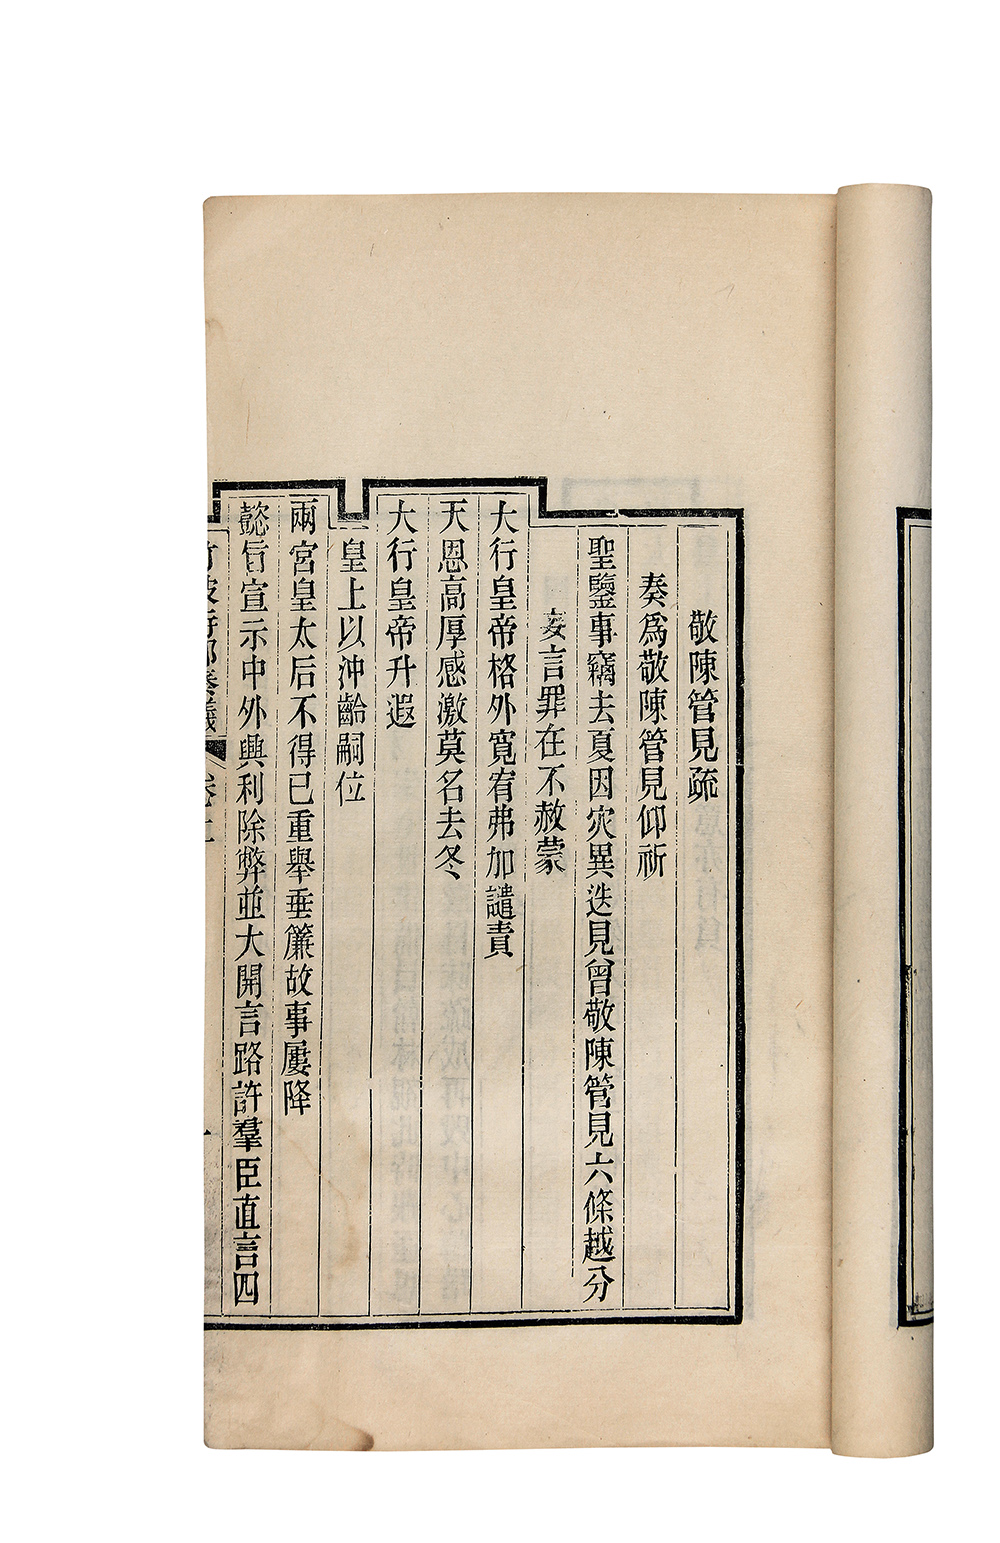 敬陳管見疏
奏爲敬陳管見仰祈
聖鑒事竊去夏因灾異迭見曾敬陳管見六條越分
妄言罪在不赦蒙
大行皇帝格外寬宥弗加譴責
天恩高厚感激莫名去冬
大行皇帝升遐
皇上以沖齡嗣位
兩宮皇太后不得已重舉垂簾故事屢降
懿旨宣示中外興利除弊並大開言路許羣臣直言四
竹坡侍郎奏議